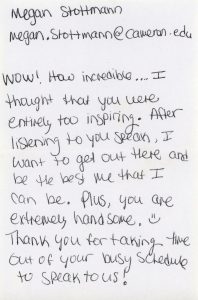 Megan Stottmann
megan.stottmann@cameron.edu
WOW! How incredible.... I
thought that you were
entirely too inspiring. After
listening to you speak, I
want to get out there and
be the best me that I
can be. Plus, you are
extremely handsome. ☺
Thank you for taking time
out of your busy schedule
to speak to us!